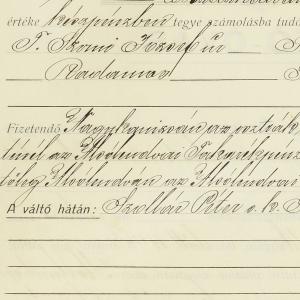 értéke készpénzben tegye számolásba tudo
T. Szomi József úr
Radamos
Fizetendő Nagykanizsán az osztrák
ténél az Alsólendvai Takarékpénz
tőleg Alsólendván az Alsólendvai
A váltó hátán: Szollár Péter s. k.